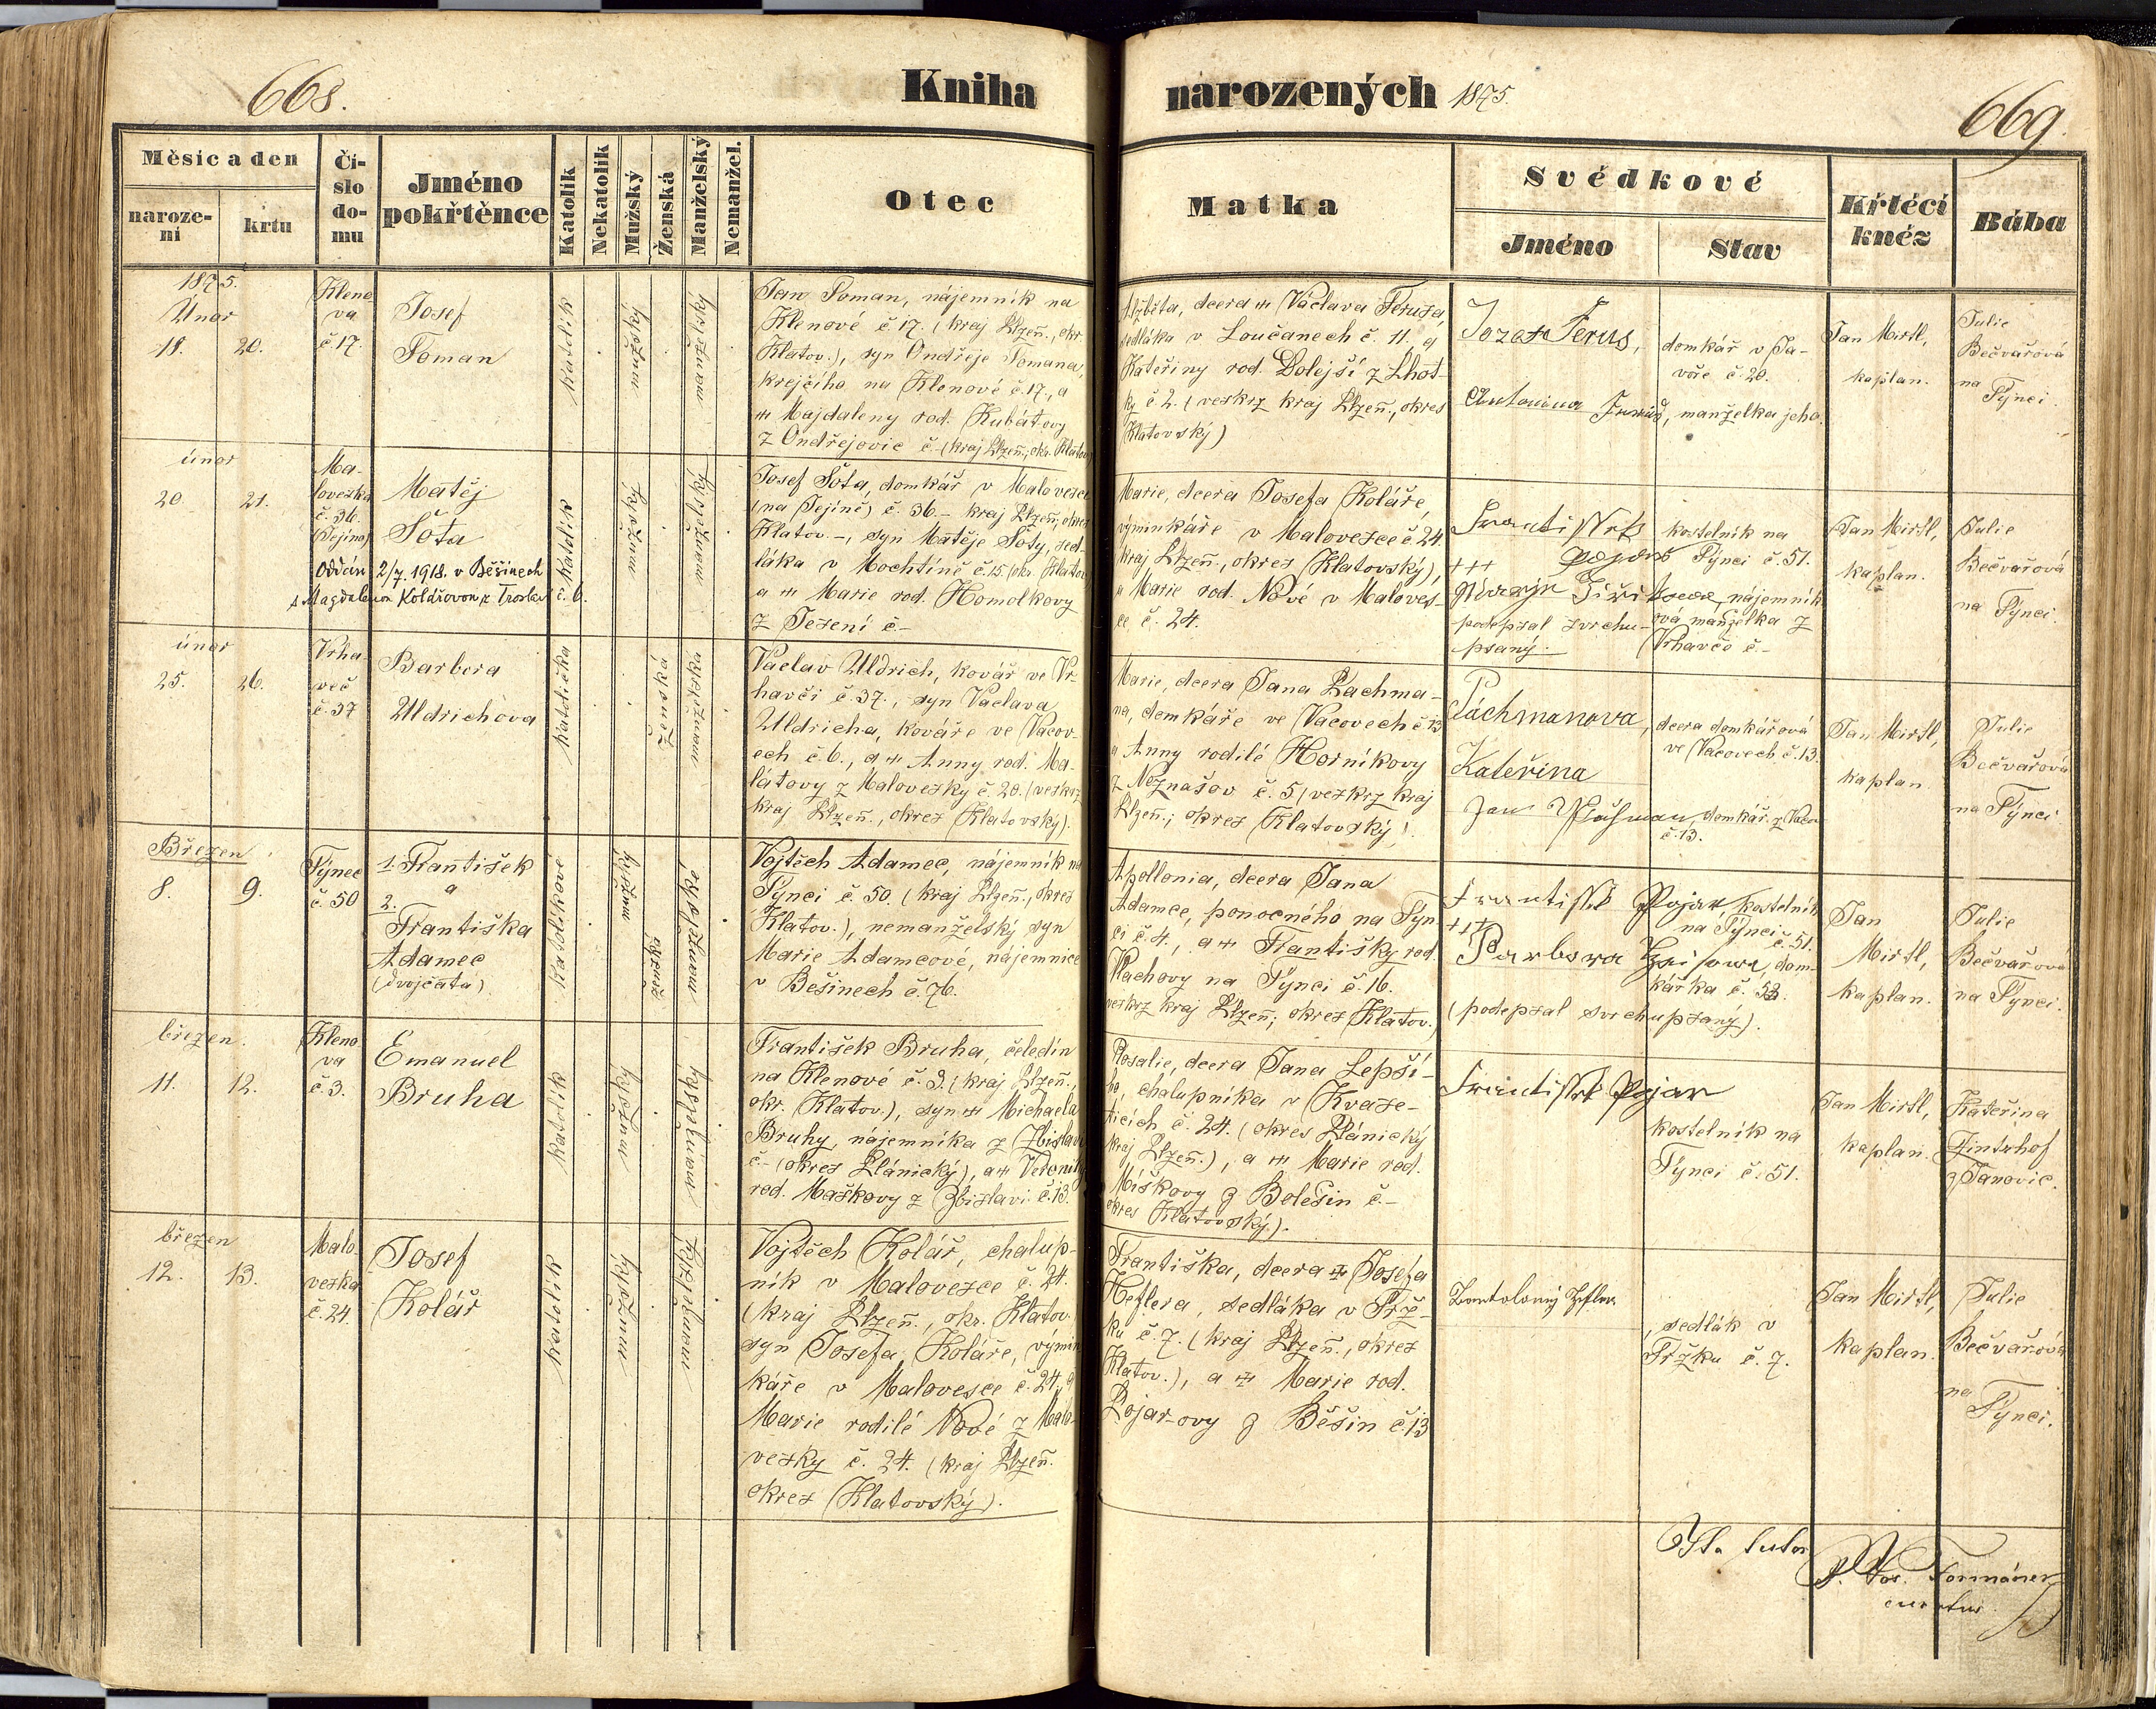 668.
Kniha
narozených 1875.
669.
Měsíc a den
naroze-
ní
krtu
Čí-
slo
do-
mu
Jméno
pokřtěnce
Katolík
Nekatolík
Mužský
Ženská
Manželský
Nemanžel.
Otec
Matka
Svědkové
Jméno
Stav
Křtěcí
kněz
Bába
1875.
Únor
18. 20.
Kleno
va
č. 17.
Josef
Toman
katolík
mužský
manželský
Jan Toman, nájemník na
Klenové č. 17. (kraj Plzeň., okr.
Klatov.), syn Ondřeje Tomana,
krejčího na Klenové č. 17., a
Majdaleny rod. Kubátovy
z Ondřejovic č.- (kraj Plzeň., okr. Klatov.)
Alžběta, dcera Václava Terusa,
sedláka v Loučanech č. 11. a
Kateřiny rod. Dolejší z Lhot-
ky č. 2. (veskrz kraj Plzeň., okres
Klatovský)
Jozef Terus,
domkář v Ja-
voře č. 20.
Antonina Terus, manželka jeho.
Jan Mirtl,
kaplan.
Julie
Bečvařová
na
Týnci.
únor
20. 21.
Ma-
loveska
č. 36.
(Pejino)
Matěj
Šota
oddán 2/7. 1918. v Běšinech
s Magdalenou Koldrovou z Troslav č. 6.
katolík
mužský
manželský
Josef Šota, domkář v Malovesce
(na Pejině) č. 36. - kraj Plzeň., okres
Klatov. -, syn Matěje Šoty, sed-
láka v Mochtíně č. 15. (okr. Klatov.)
a Marie rod. Homolkovy
z Jesení č.-
Marie, dcera Josefa Koláře,
výminkáře v Malovesce č. 24.
kraj Plzeň., okres Klatovský),
a Marie rod. Nové v Maloves-
ce č. 24.
Frantisek
Pojar
kostelník na
Týnci č. 51.
+++
nájemník
podepsal svrchu-
psaný.
ová manželka z
Vrhavče č.-
Jan Mirtl,
kaplan.
Julie
Bečvařová
na
Týnci.
únor
25. 26.
Vrha-
več
č. 37
Barbora
Uldrichova
katolička
ženská
manželská
Václav Uldrich, kovář ve Vr-
havči č. 37., syn Václava
Uldricha, kováře ve Vacov-
ech č. 6., a Anny rod. Ma-
látovy z Malovesky č. 20. (veskrz
kraj Plzeň., okres Klatovský).
Marie, dcera Jana Pachma-
na, domkáře ve Vacovech č. 13
a Anny rodilé Horníkovy
z Neznašov č. 5 (veskrz kraj
Plzeň., okres Klatovský).
Páchmanova,
Kateřina
dcera domkářová
ve Vacovech č. 13.
Jan Pachman, domkář z Vacov
č. 13.
Jan Mirtl,
kaplan
Julie
Bečvařová
na Týnci.
Březen
8. 9.
Týnec
č. 50
1. František
a
2.
Františka
Adamec
(dvojčata)
katolíkové
mužský
ženská
manželské
Vojtěch Adamec, nájemník na
Týnci č. 50. (kraj Plzeň., okres
Klatov.), nemanželský syn
Marie Adamcové, nájemnice
v Bešinech č. 76.
Apollonia, dcera Jana
Adamce, ponocného na Týn-
ci č. 4., a Františky rod.
Plachovy na Týnci č. 16.
veskrz kraj Plzeň., okres Klatov.)
Frantisek Pojar kostelník
na Týnci
č. 51.
+++
Barbora dom-
kářka č. 53.
(podepsal svrchupsaný).
Jan
Mirtl,
kaplan.
Julie
Bečvařová
na Týnci.
březen.
11. 12.
Kleno
va
č. 3.
Emanuel
Bruha
katolík
mužský
manželský
František Bruha, čeledín
na Klenové č. 3. (kraj Plzeň.,
okr. Klatov.), syn Michaela
Bruhy, nájemníka z Zbislavi
č.- (okres Plánický), a Veroniky
rod. Maškovy z Zbislavi č. 13.
Rosalie, dcera Jana Lepší-
ho, chalupníka v Kvase-
ticích č. 24. (okres Plánický
kraj Plzeň.), a Marie rod.
Míškovy z Bolešin č.-
okres Klatovský).
Frantisek Pojar
kostelník na
Týnci č. 51.
Jan Mirtl,
kaplan.
Kateřina
Zintrhof
z Janovic.
březen
12. 13.
Malo-
veska
č. 24.
Josef
Kolář
katolík
mužský
manželský
Vojtěch Kolář, chalup-
ník v Malovesce č. 24.
(kraj Plzeň., okr. Klatov.
syn Josefa Koláře, výmin-
káře v Malovesce č. 24. a
Marie rodilé Nové z Malo-
vesky č. 24. (kraj Plzeň.
okres Klatovský).
Františka, dcera Josefa
Heflera, sedláka v Trž-
ku č. 7. (kraj Plzeň., okres
Klatov.), a Marie rod.
Pojar-ovy z Běšin č. 13
Bartolomej Hefler
, sedlák v
Tržku č. 7.
Jan Mirtl,
kaplan.
Julie
Bečvařová
na
Týnci.
P. Jos. Formánek
curatus